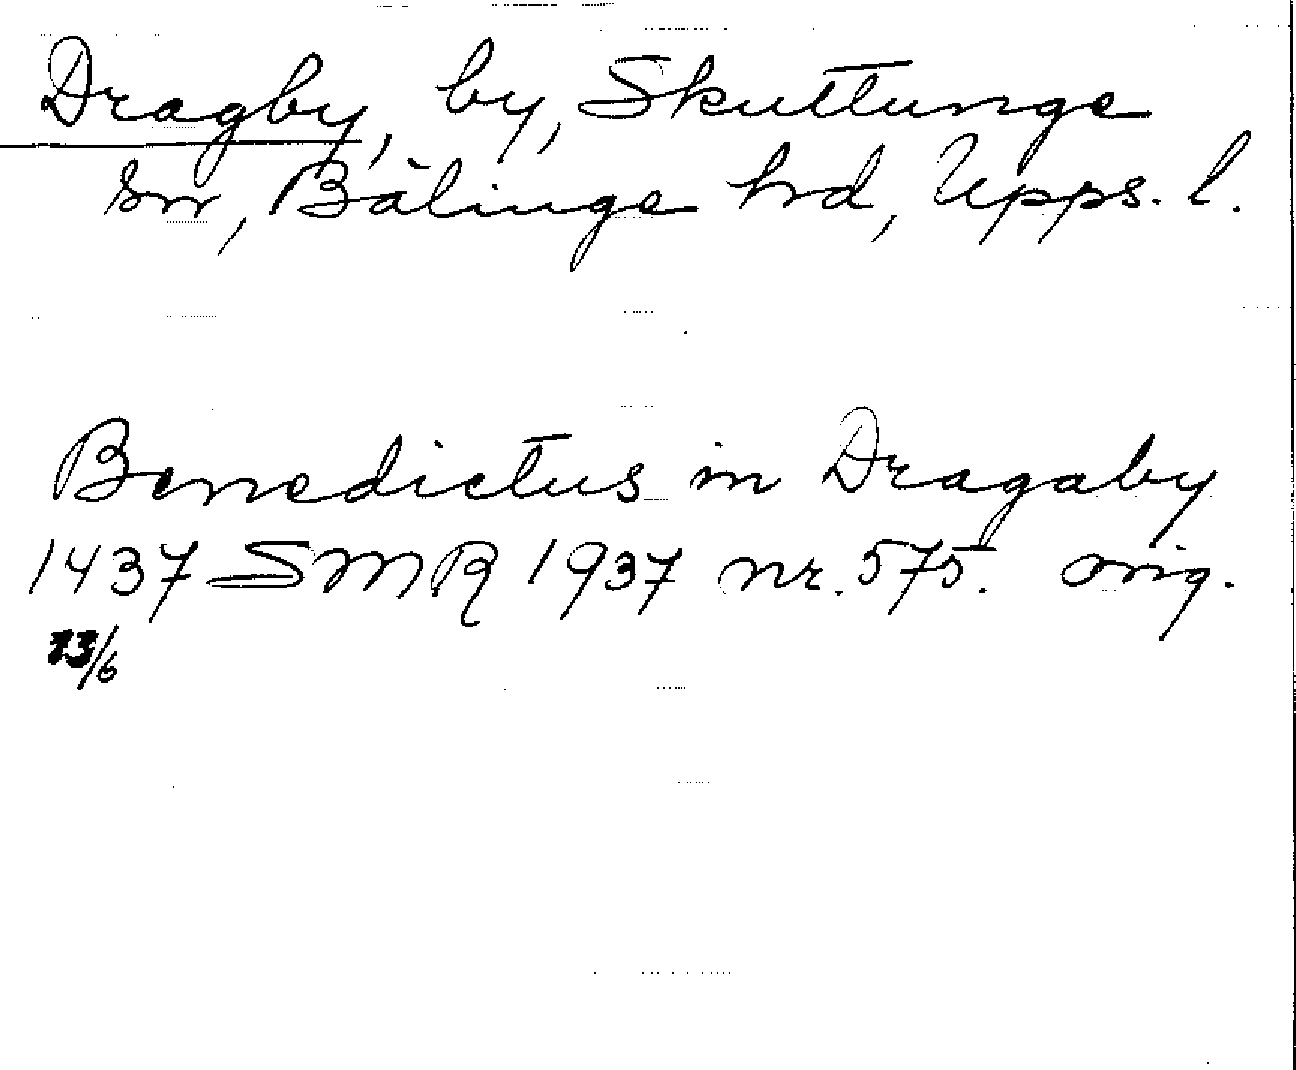 Dragby, by, Skuttunge
sn, Bälinge hd, Upps. l.
Benedictus in Dragaby
1437 SMR 1937 nr. 575. orig.
23/6